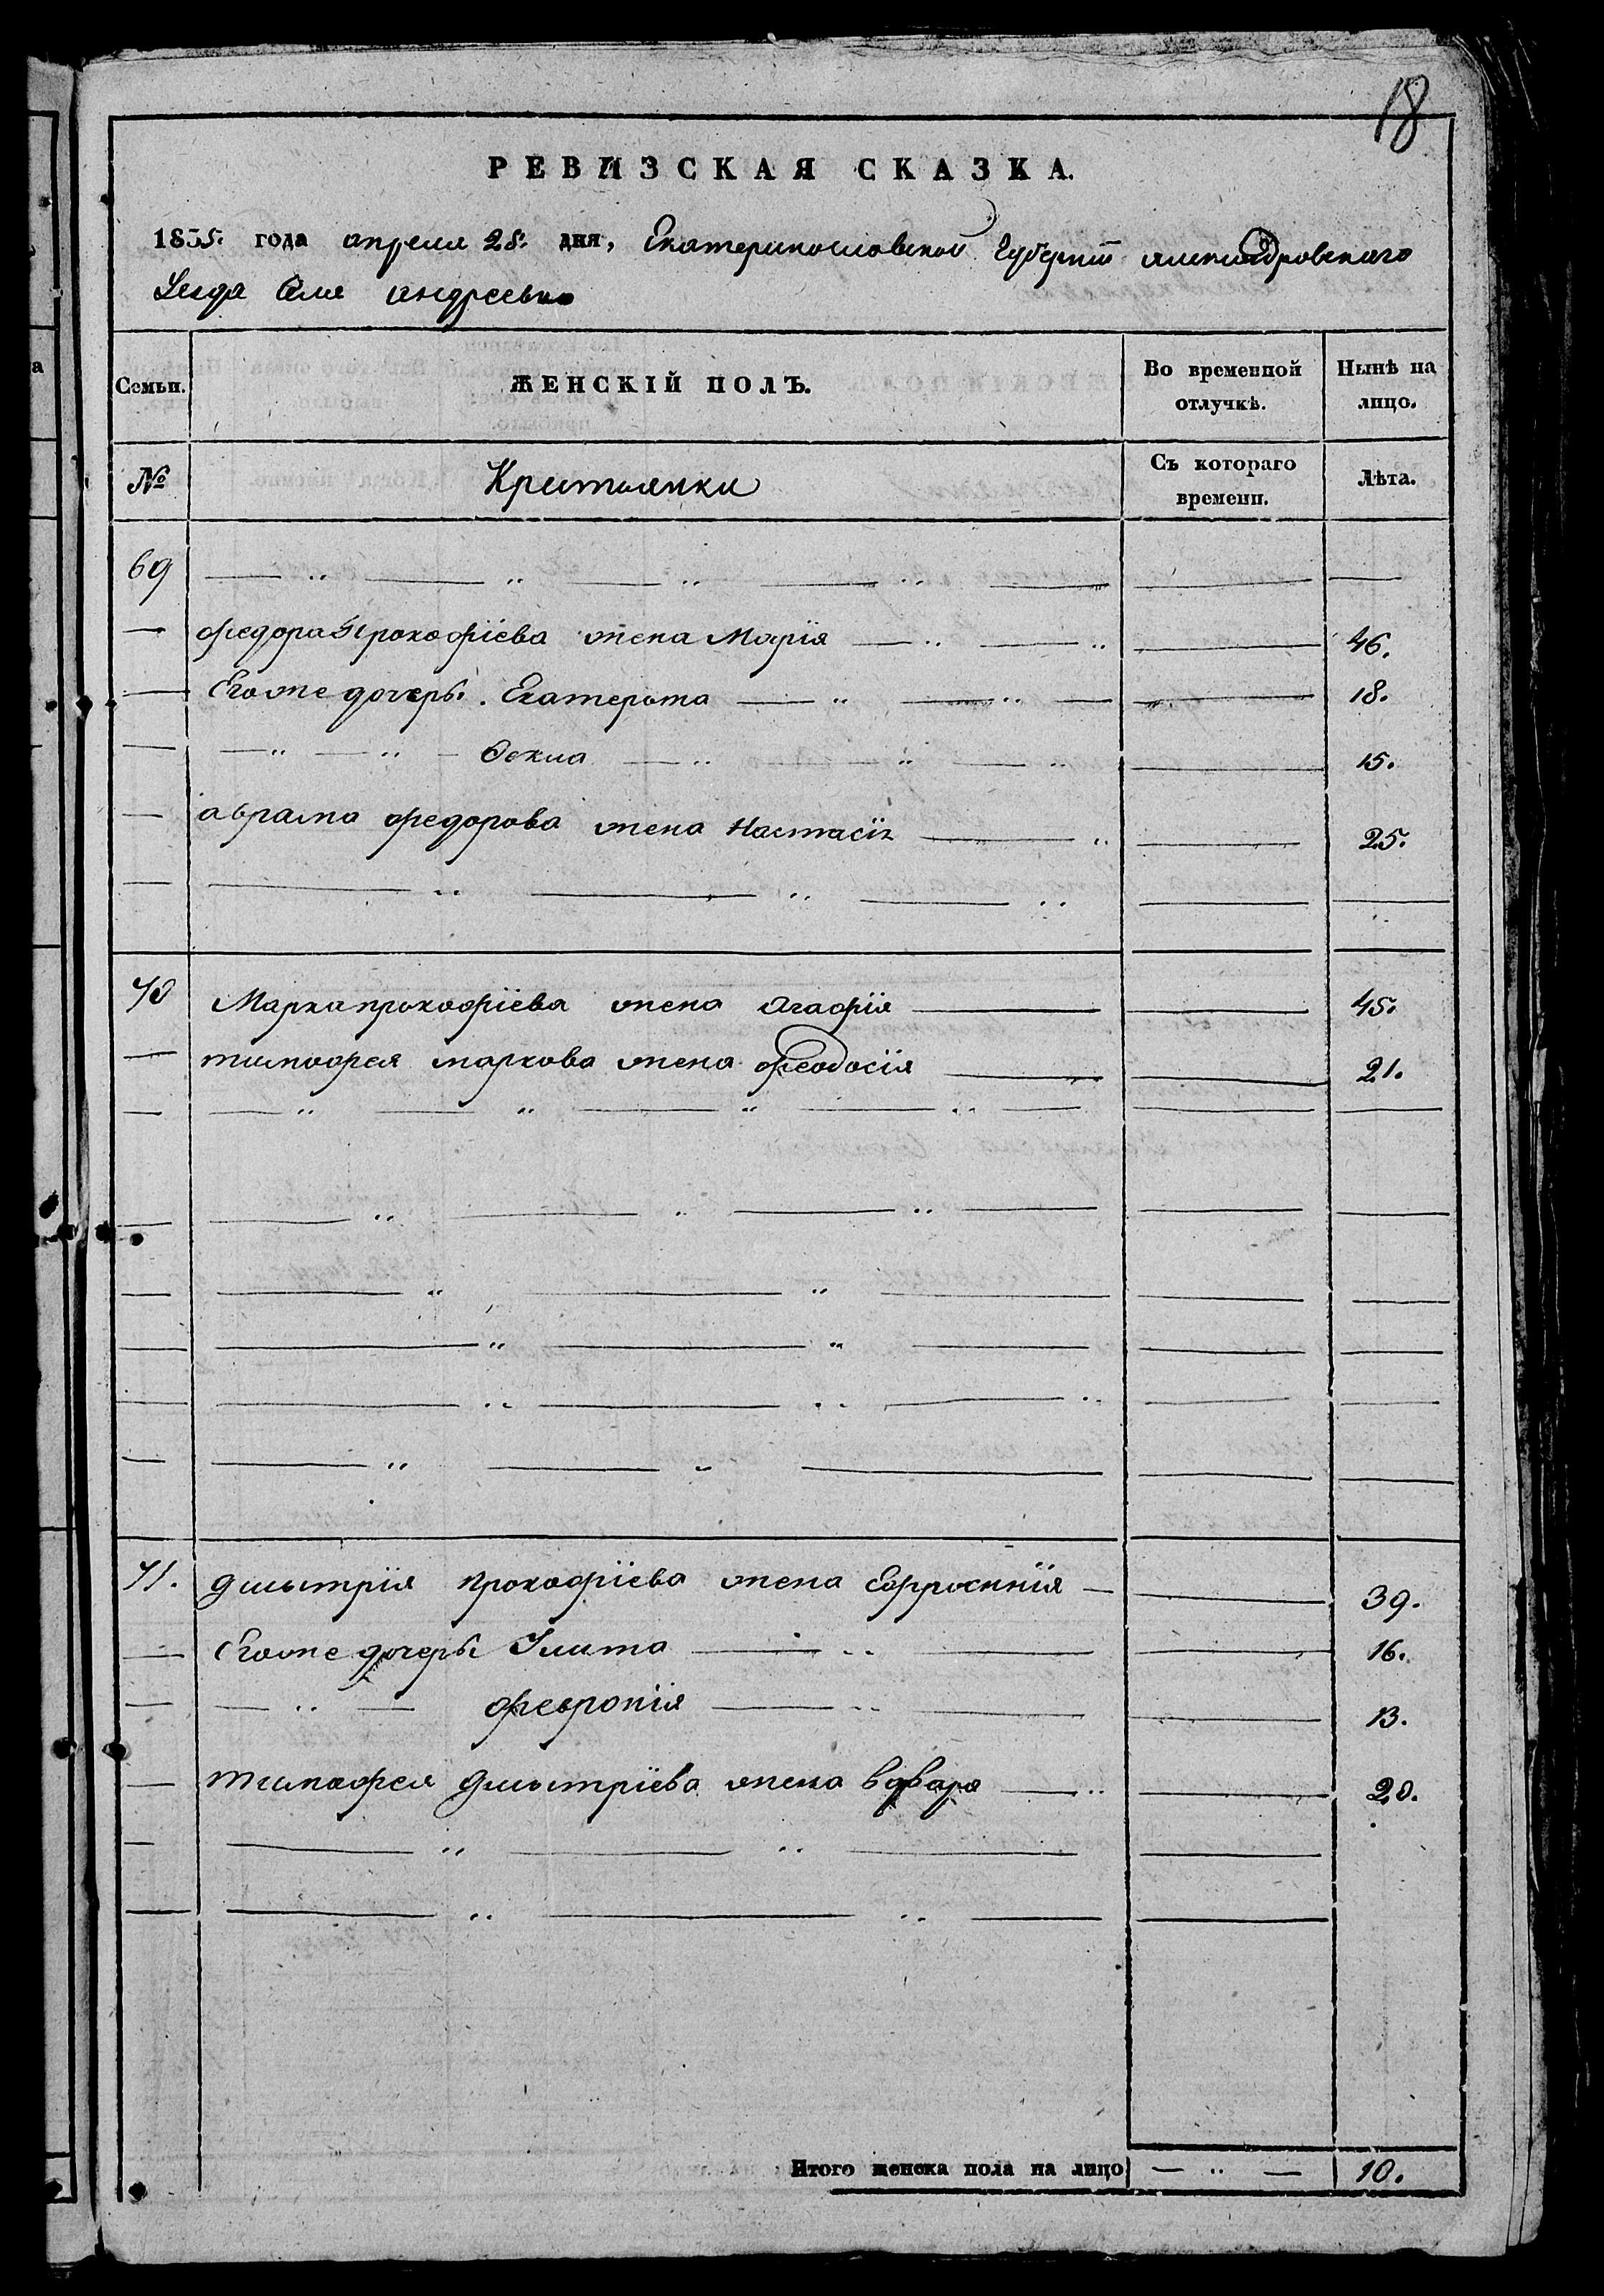 18
РЕВИЗСКАЯ СКАЗКА.
1835. года апреля 28. дня, Екатеринославской Губернiи александровского
Уезда Села андреевки
Семьи. ЖЕНСКІЙ ПОЛЪ. Во временной отлучкѣ. Нынѣ на лицо.
№ Крестьянки Съ котораго времени. Лѣта.
69
федора прокофіева жена Марія 46.
Его же дочеры. Екатерына 18.
15.
аврама федорова жена Настасія 25.
70 Марка прокофіева жена Агафія 45.
тимофея маркова жена феодосія 21.
71. дмытрія прокофіева жена Ефросинія 39.
Его же дочеры Улита 16.
феврония 13.
тимофея дмытріева жена варвара 20.
Итого женска пола на лицо 10.